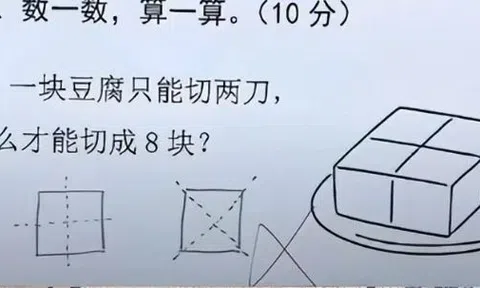 数一数，算一算。（10 分）
一块豆腐只能切两刀，
么才能切成 8 块？